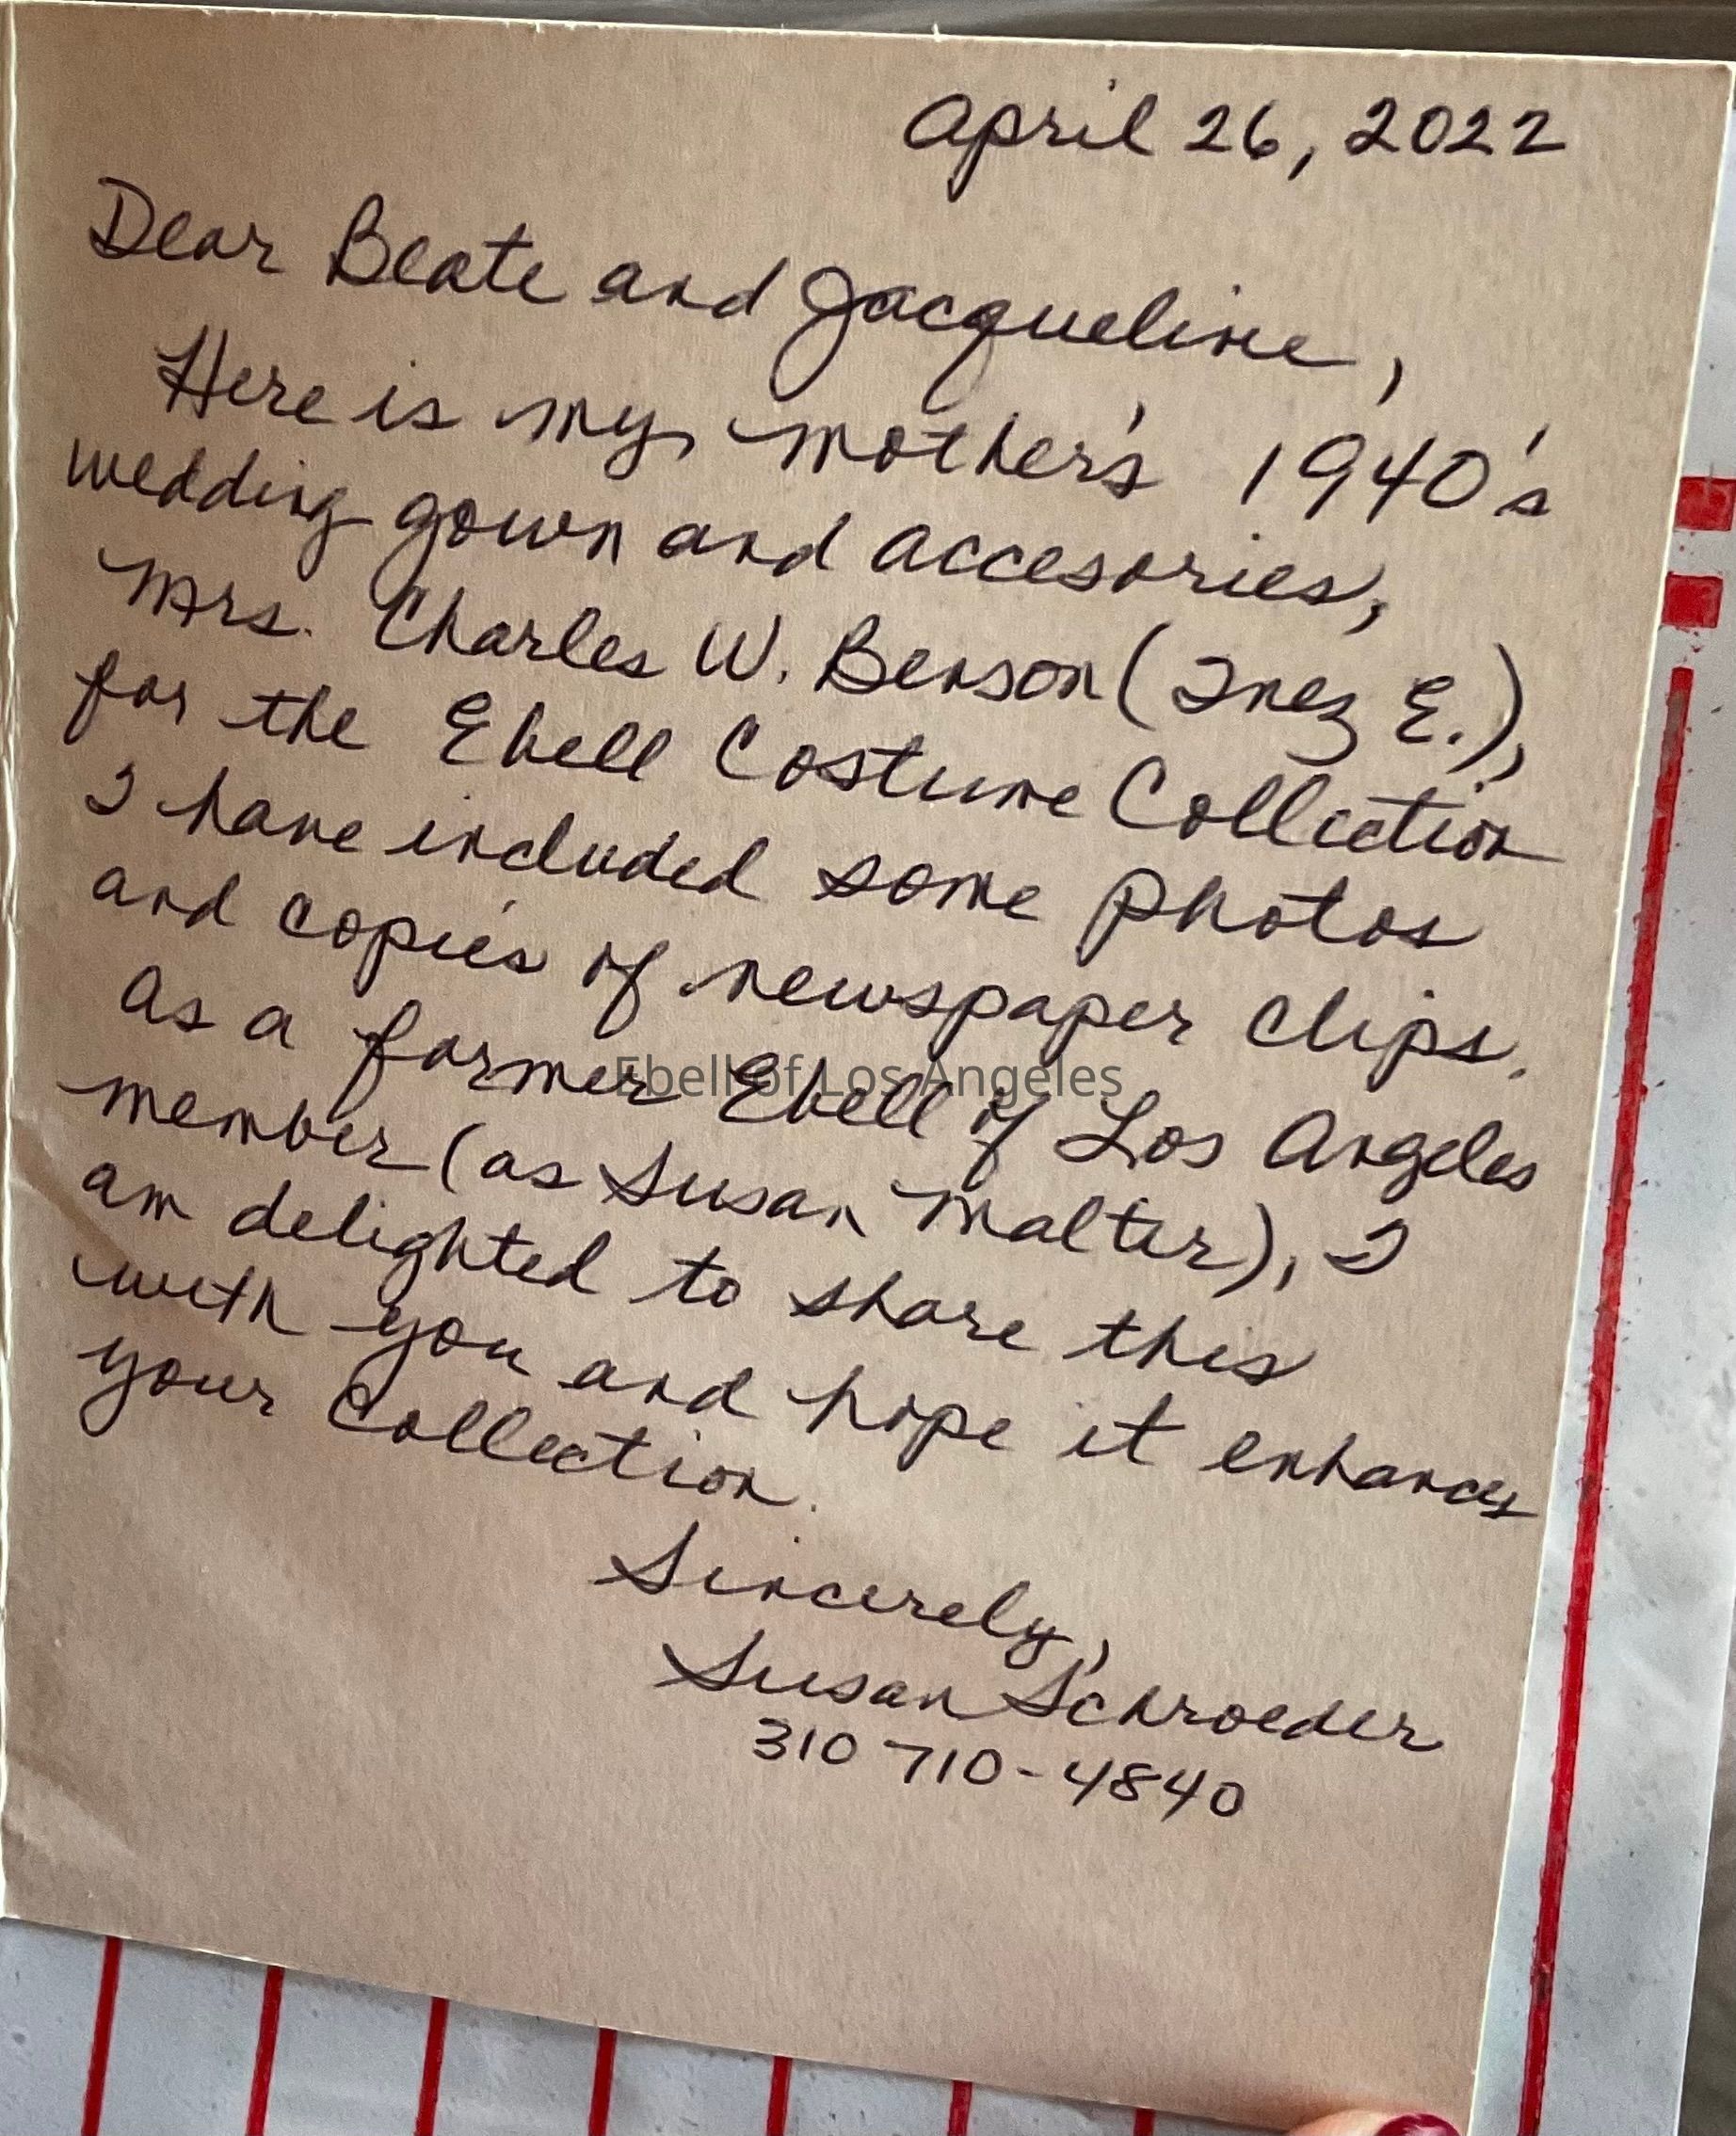 April 26, 2022
Dear Beate and Jacqueline,
Here is my mother's 1940's
wedding gown and accesories,
Mrs. Charles W. Benson (Inez E.),
for the Ebell Costume Collection
I have included some photos
and copies of newspaper clips.
As a former Ebell of Los Angeles
member (as Susan Malter), I
am delighted to share this
with you and hope it enhances
your Collection.
Sincerely,
Susan Schroeder
310 710-4840
Ebell of Los Angeles